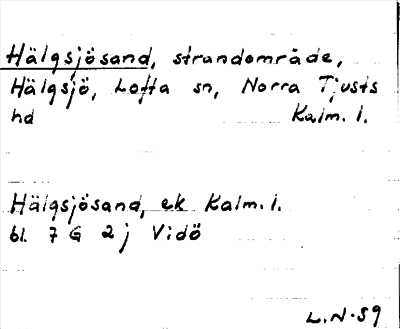 Hälgsjösand, strandområde,
Hälgsjö, Lofta sn, Norra Tjusts
hd Kalm. l.
Hälgsjösand, ek Kalm. l.
bl. 7 G 2 j Vidö
L.N.59